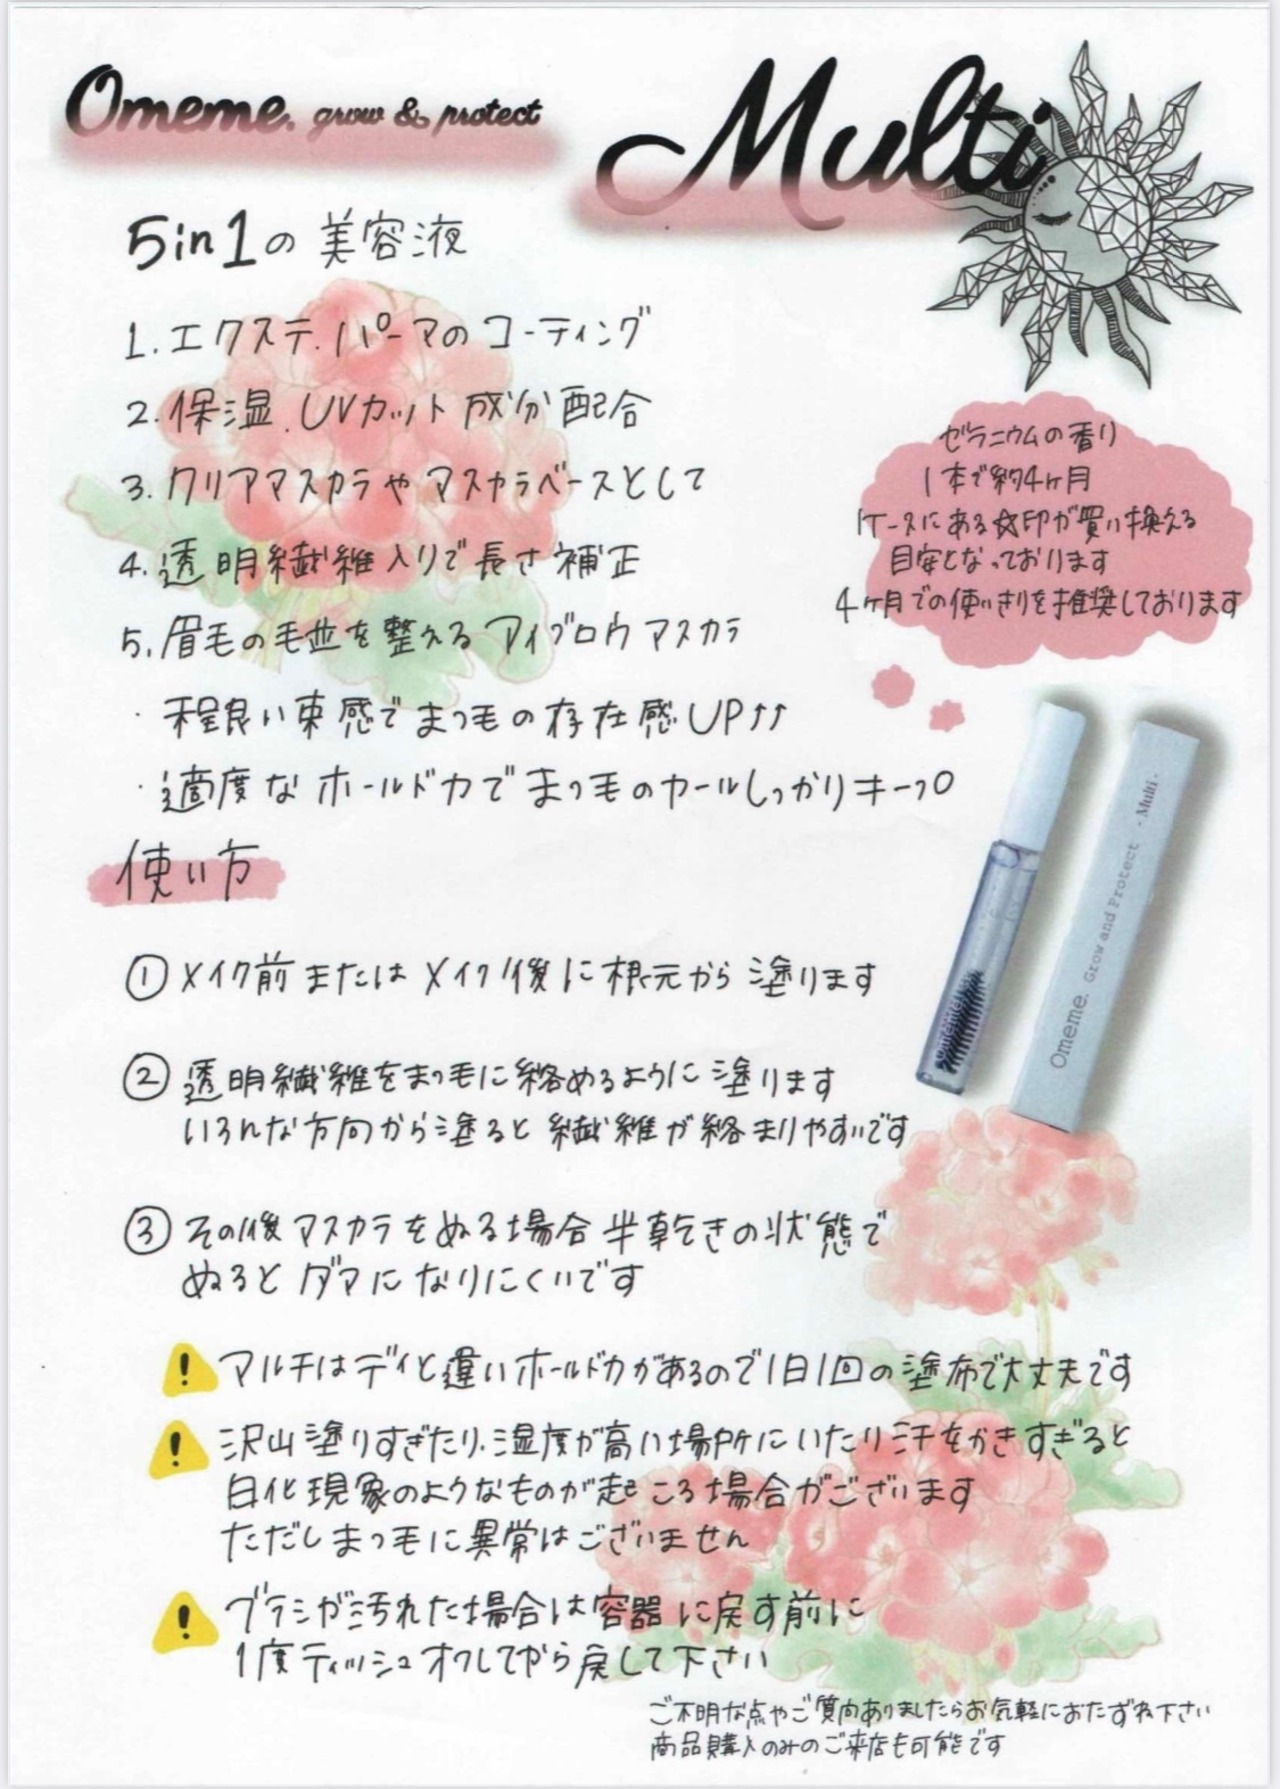 Omeme. grow & protect
Multi
5in1の美容液
1.エクステ.パーマのコーティング
2.保湿.UVカット成分配合
3.クリアマスカラやマスカラベースとして
4.透明繊維入りで長さ補正
5.眉毛の毛並を整えるアイブロウマスカラ
・程良い束感でまつ毛の存在感UP↑↑
・適度なホールド力でまつ毛のカールしっかりキープ
ゼラニウムの香り
1本で約4ヶ月
ケースにある☆印が買い換える
目安となっております
4ヶ月での使いきりを推奨しております
Omeme. Grow and Protect -Multi-
使い方
①メイク前またはメイク後に根元から塗ります
②透明繊維をまつ毛に絡めるように塗ります
いろんな方向から塗ると繊維が絡まりやすいです
③その後マスカラをぬる場合半乾きの状態で
ぬるとダマになりにくいです
マルチはデイと違いホールド力があるので1日1回の塗布で大丈夫です
沢山塗りすぎたり.湿度が高い場所にいたり汗をかきすぎると
白化現象のようなものが起こる場合がございます
ただしまつ毛に異常はございません
ブラシが汚れた場合は容器に戻す前に
1度ティッシュオフしてから戻して下さい
ご不明な点やご質問ありましたらお気軽におたずね下さい
商品購入のみのご来店も可能です